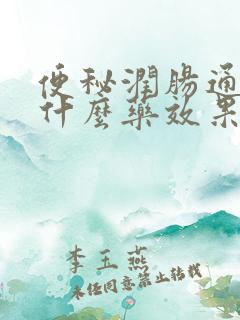 便秘潤腸通
什麼藥效果
李玉燕
未经同意禁止转载